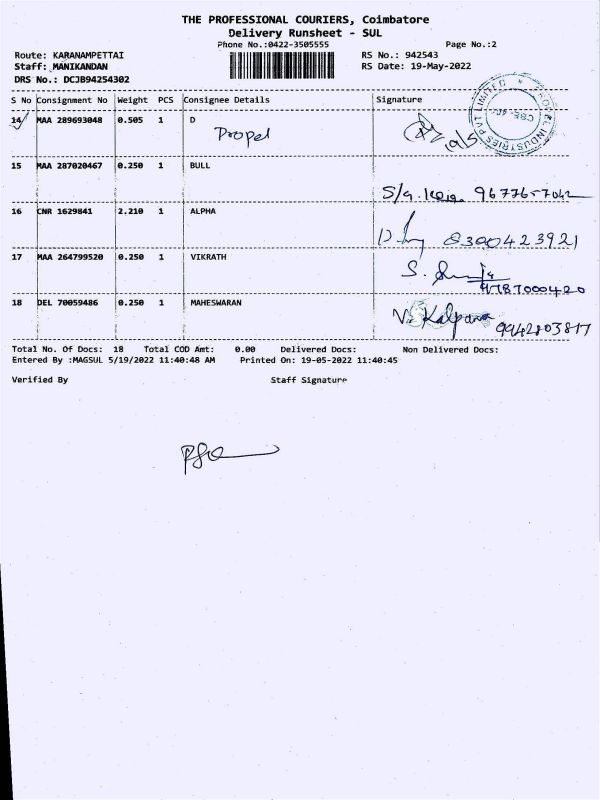 THE PROFESSIONAL COURIERS, Coimbatore
Delivery Runsheet - SUL
Phone No.:0422-3505555 Page No.:2
Route: KARANAMPETTAI RS No.: 942543
Staff: MANIKANDAN RS Date: 19-May-2022
DRS No.: DCJB94254302
S No Consignment No Weight PCS Consignee Details Signature
14 MAA 289693048 0.505 1 D
Propel
15 MAA 287020467 0.250 1 BULL
16 CNR 1629841 2.210 1 ALPHA
8300423921
17 MAA 264799520 0.250 1 VIKRATH
S.
9787000420
18 DEL 70059486 0.250 1 MAHESWARAN
V. Kalpana 9942803817
Total No. Of Docs: 18 Total COD Amt: 0.00 Delivered Docs: Non Delivered Docs:
Entered By :MAGSUL 5/19/2022 11:40:48 AM Printed On: 19-05-2022 11:40:45
Verified By Staff Signature